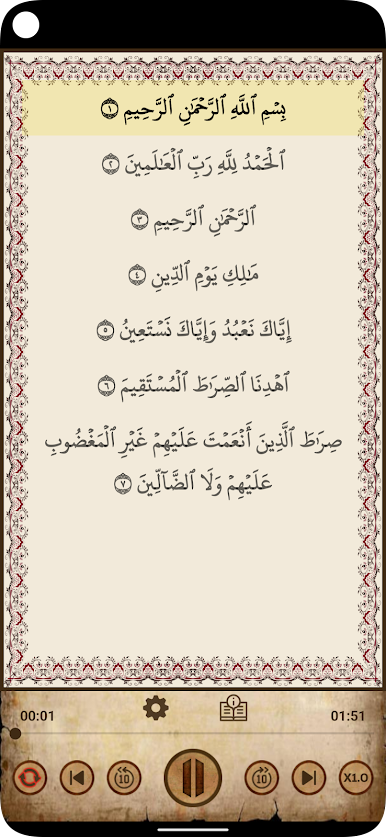 بِسْمِ ٱللَّهِ ٱلرَّحْمَٰنِ ٱلرَّحِيمِ ١
ٱلْحَمْدُ لِلَّهِ رَبِّ ٱلْعَٰلَمِينَ ٢
ٱلرَّحْمَٰنِ ٱلرَّحِيمِ ٣
مَٰلِكِ يَوْمِ ٱلدِّينِ ٤
إِيَّاكَ نَعْبُدُ وَإِيَّاكَ نَسْتَعِينُ ٥
ٱهْدِنَا ٱلصِّرَٰطَ ٱلْمُسْتَقِيمَ ٦
صِرَٰطَ ٱلَّذِينَ أَنْعَمْتَ عَلَيْهِمْ غَيْرِ ٱلْمَغْضُوبِ
عَلَيْهِمْ وَلَا ٱلضَّآلِّينَ ٧
00:01 01:51
10 10 X1.0